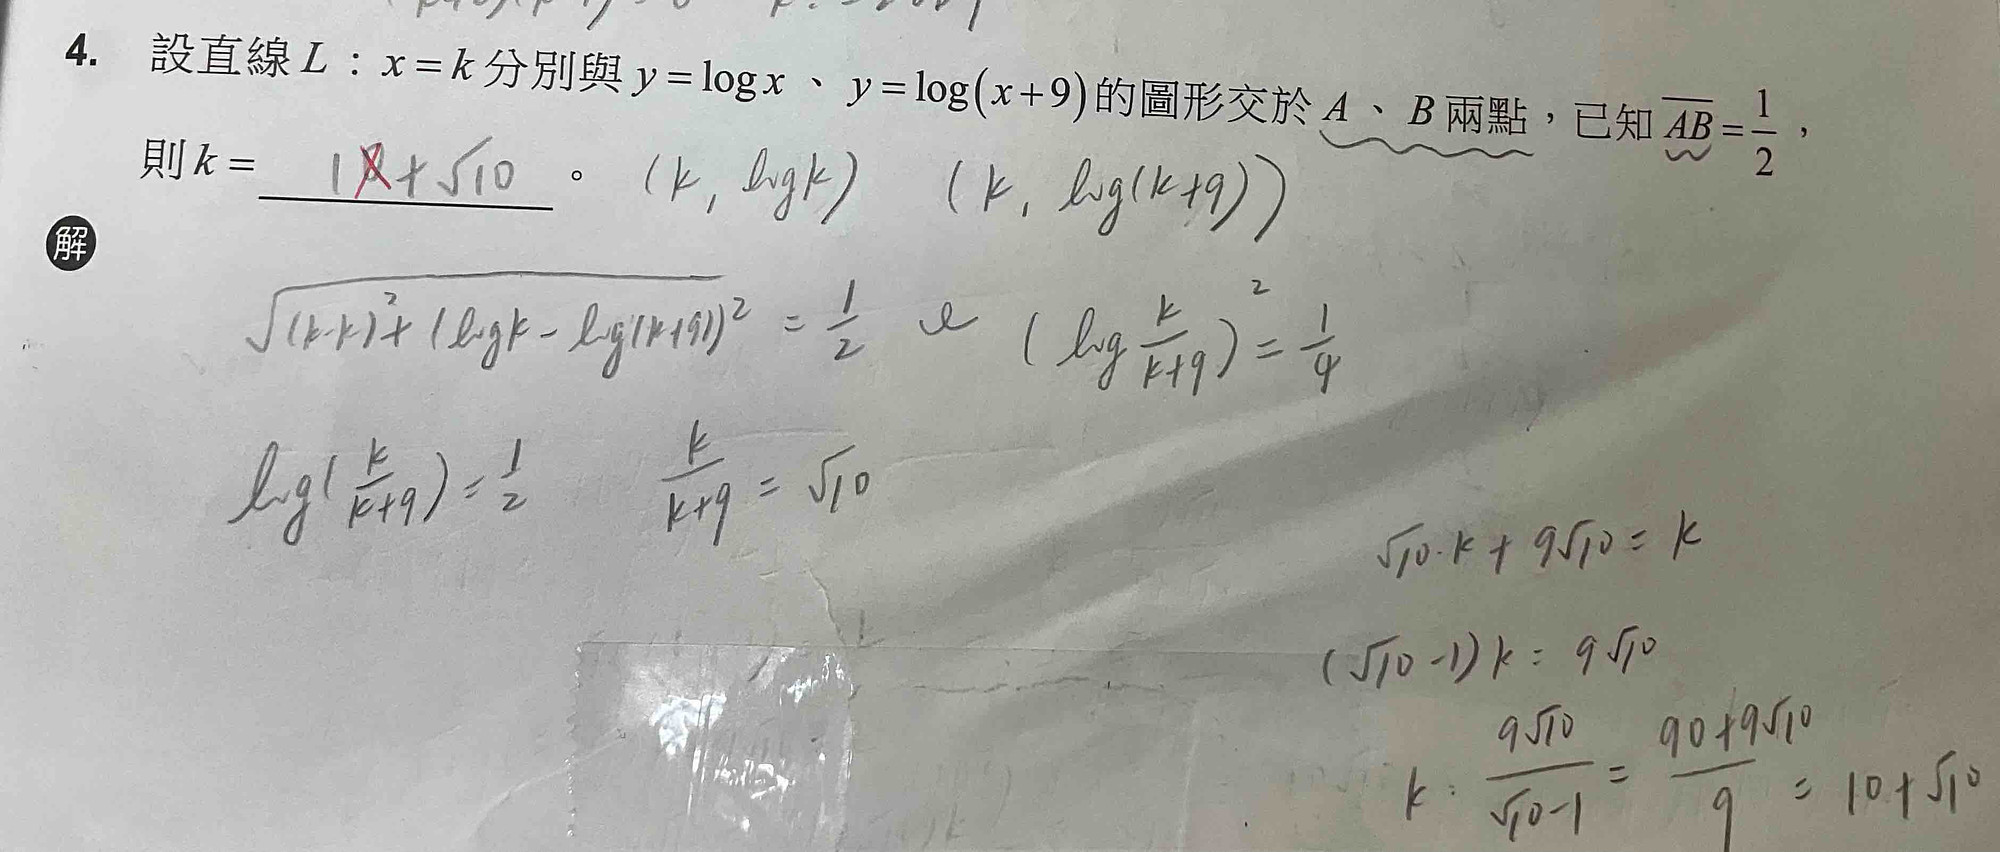 4. 設直線 L：x = k 分別與 y = log x、y = log(x+9) 的圖形交於 A、B 兩點，已知 \overline{AB} = \frac{1}{2}，
則 k = 1 + √10 。 (k, log k) (k, log(k+9))
解
√((k-k)² + (log k - log(k+9))²) = 1/2 (log k/(k+9))² = 1/4
log(k/(k+9)) = 1/2 k/(k+9) = √10
√10·k + 9√10 = k
(√10 - 1) k = 9√10
k = 9√10/(√10-1) = (90+9√10)/9 = 10+√10